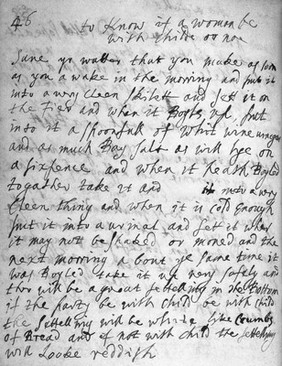 46
to Know if a woman be
with Childe or noe
Save ye watter that you make as soon
as you awake in the morning and put it
into a very Cleen skilett and sett it on
the fier and when it Boyls, up, put
into it a spoonfull of whit wine
and as much Bay salt as will lye on
a sixpence and when it heath Boyled
togather take it and into a very
Cleen thing and when it is cold Enough
put it into a urinal and sett it wher
it may not be shaked or moved and the
next morning a bout ye same time it
was Boyled take it up very safely and
ther will be a great settelling in the Bottum
if the party be with Child be with Child
the settelling will be white like Crumbs
of Bread and if not with child the settelling
will Looke reddish